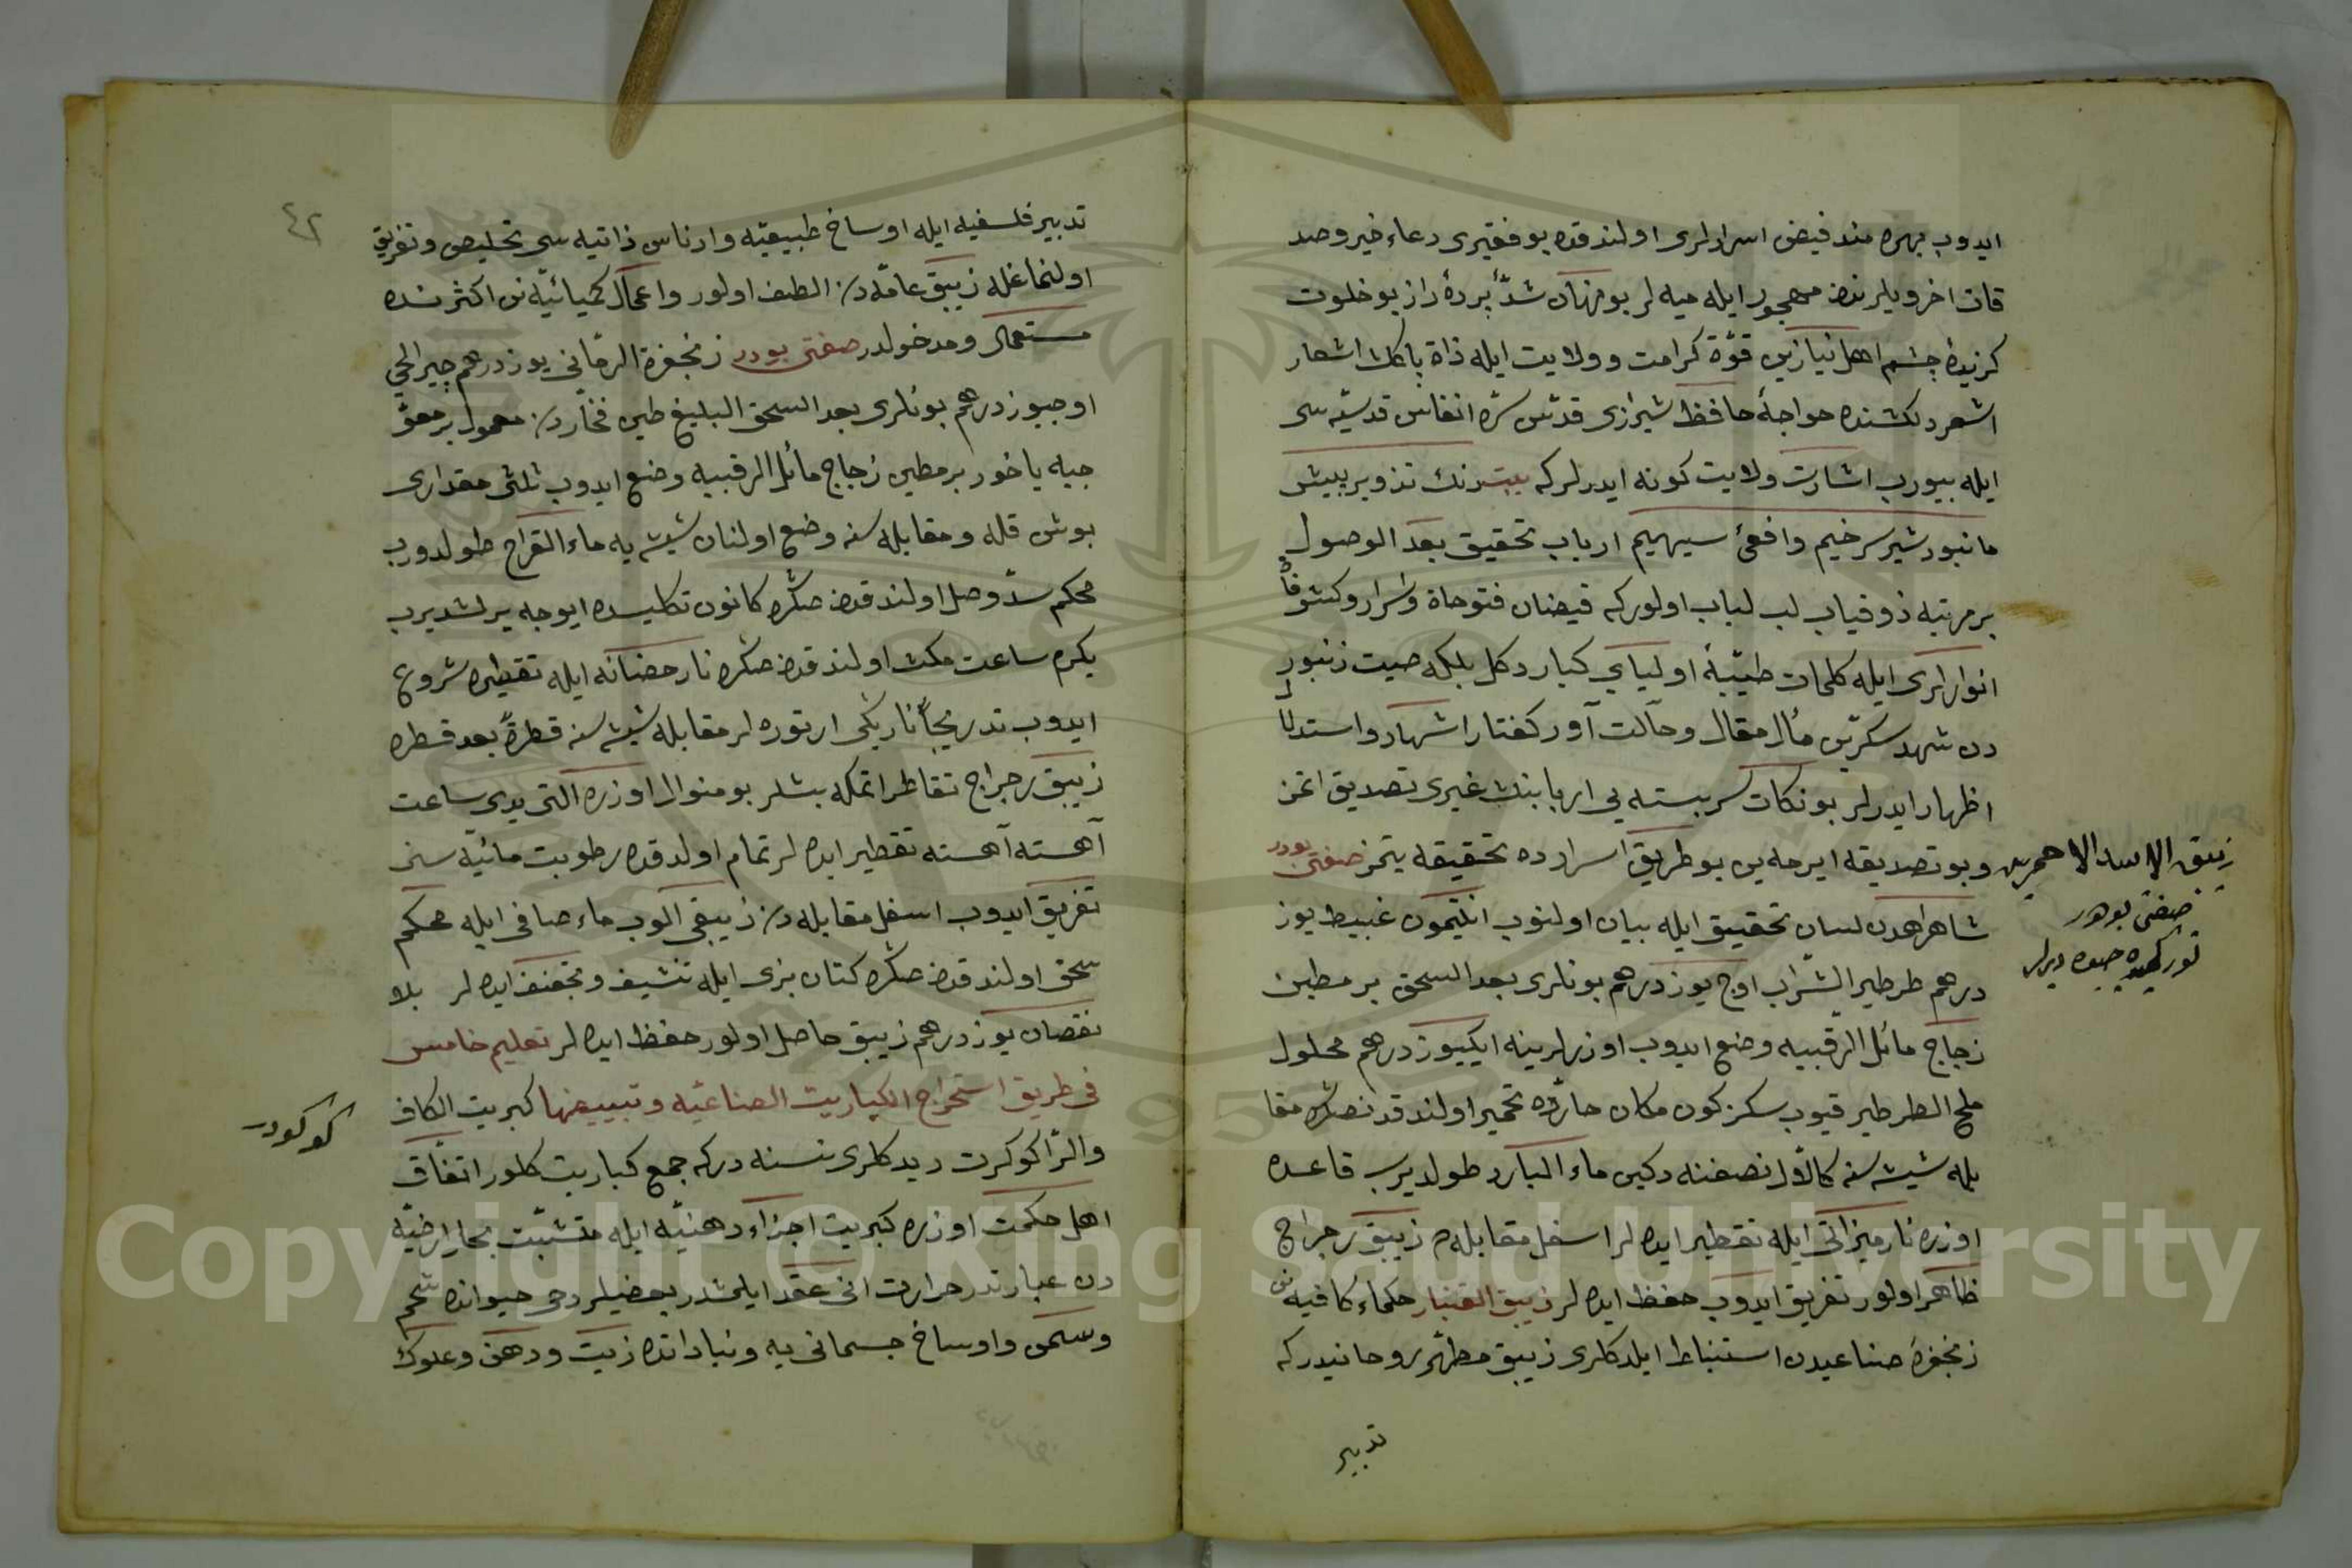 ايدوب بهره مند فيض اسرارلرى اولندقده بو فقيرى دعاء خير وصد
قات اخرويلرندن مهجور ايله ميه لر بو منهان شدّه پردهٔ راز بو خلوت
كزيدهٔ چشم اهل نيازين قوّة كرامت و ولايت ايله ذاة پاك اشعار
اشعر دلكشنده خواجهٔ حافظ شيرازى قدّس سرّه انفاس قدسيّه سى
ايله بيورب اشارت ولايت كونه ايدرلر كه بيت رنك تزوير پيش
ما نبود شير سرخيم وافعئ سيهيم ارباب تحقيق بعد الوصول
بر مرتبه ذوقياب لب لباب اولور كه فيضان فتوحاة واسرار وكشوفا
انوارلرى ايله كلمات طيّبهٔ اولياي كبار دكل بلكه صيت زنبور
دن شهد سكرين مأل مقال وحالت آور كفتار اشهاد واستدلا
اظهار ايدرلر بو نكات سربسته يى اربابنك غيرى تصديق اتمز
وبو تصديقه ايرمه ين بو طريق اسرارده تحقيقه يتمز صفتى بودر
شاهراهدن لسان تحقيق ايله بيان اولنوب انتيمون غبيط يوز
درهم طرطير الشّراب اوج يوز درهم بونلرى بعد السحق بر مطين
زجاج مائل الرّقبيه وضع ايدوب اوزرلرينه ايكيوز درهم محلول
ملح الطرطير قيوب سكز كون مكان حارّه ده تخمير اولندقدنصكره مقا
بله شيشه سنه كالاوّل نصفنه دكين ماء البارد طولديرب قاعده
اوزره نار ميزانى ايله تقطير ايده لر اسفل مقابله ده زيبق رجراج
ظاهر اولور تفريق ايدوب حفظ ايده لر زيبق القنبار حكماء كافيه نن
زنجفرهٔ صناعيدن استنباط ايلدكلرى زيبق مطهّر روحانيدر كه
تدبير
زيبق الاسد الاحمرين
صفتى بودر
توركيده جيوه ديرلر
٤٢
تدبير فلسفيه ايله اوساخ طبيعيّه وادناس ذاتيه سى تخليص وتفريق
اولنماغله زيبق عامّه دن الطف اولور واعمال كميائيّه نن اكثرنده
مستعمال ومدخولدر صفتى بودر زنجفرة الرمّانى يوز درهم جير الحي
اوجيوز درهم بونلرى بعد السحق البليغ طين فخّاردن معمول بر معوّ
جيه ياخود بر مطين زجاج مائل الرقبيه وضع ايدوب ثلثى مقدارى
بوش قله ومقابله سنه وضع اولنان شيشه يه ماء القراح طولدورب
محكم سدّ وصل اولندقدن صكره كانون تكليسده ايوجه يرلشديرب
يكرمى ساعت مكث اولندقدن صكره نار حضانه ايله تقطيره شروع
ايدوب تدريجاً نارينكى ارتوره لر مقابله شيشه سنه قطرةً بعد قطره
زيبق رجراج تقاطر اتمكه بشلر بو منوال اوزره التى يدى ساعت
آهسته آهسته تقطير ايده لر تمام اولدقده رطوبت مائيّه سنى
تفريق ايدوب اسفل مقابله دن زيبقى الوب ماء صافى ايله محكم
سحق اولندقدن صكره كتان بزى ايله تنشيف وتجفيف ايده لر بلا
نقصان يوز درهم زيبق حاصل اولور حفظ ايده لر تعليم خامس
فى طريق استخراج الكباريت الصناعيّه وتبييضها كبريت الكاف
والرّا كوكرت ديدكلرى نسنه در كه جمع كباريت كلور اتفاق
اهل حكمت اوزره كبريت اجزاء دهنيّه ايله متشبّت بخار ارضيّه
دن عبارتدر حرارت انى عقد ايلمشدر بعضيلر دخى حيوانده شحم
وسمن واوساخ جسمانى يه ونباداتده زيت ودهن وعلوك
كوكودر